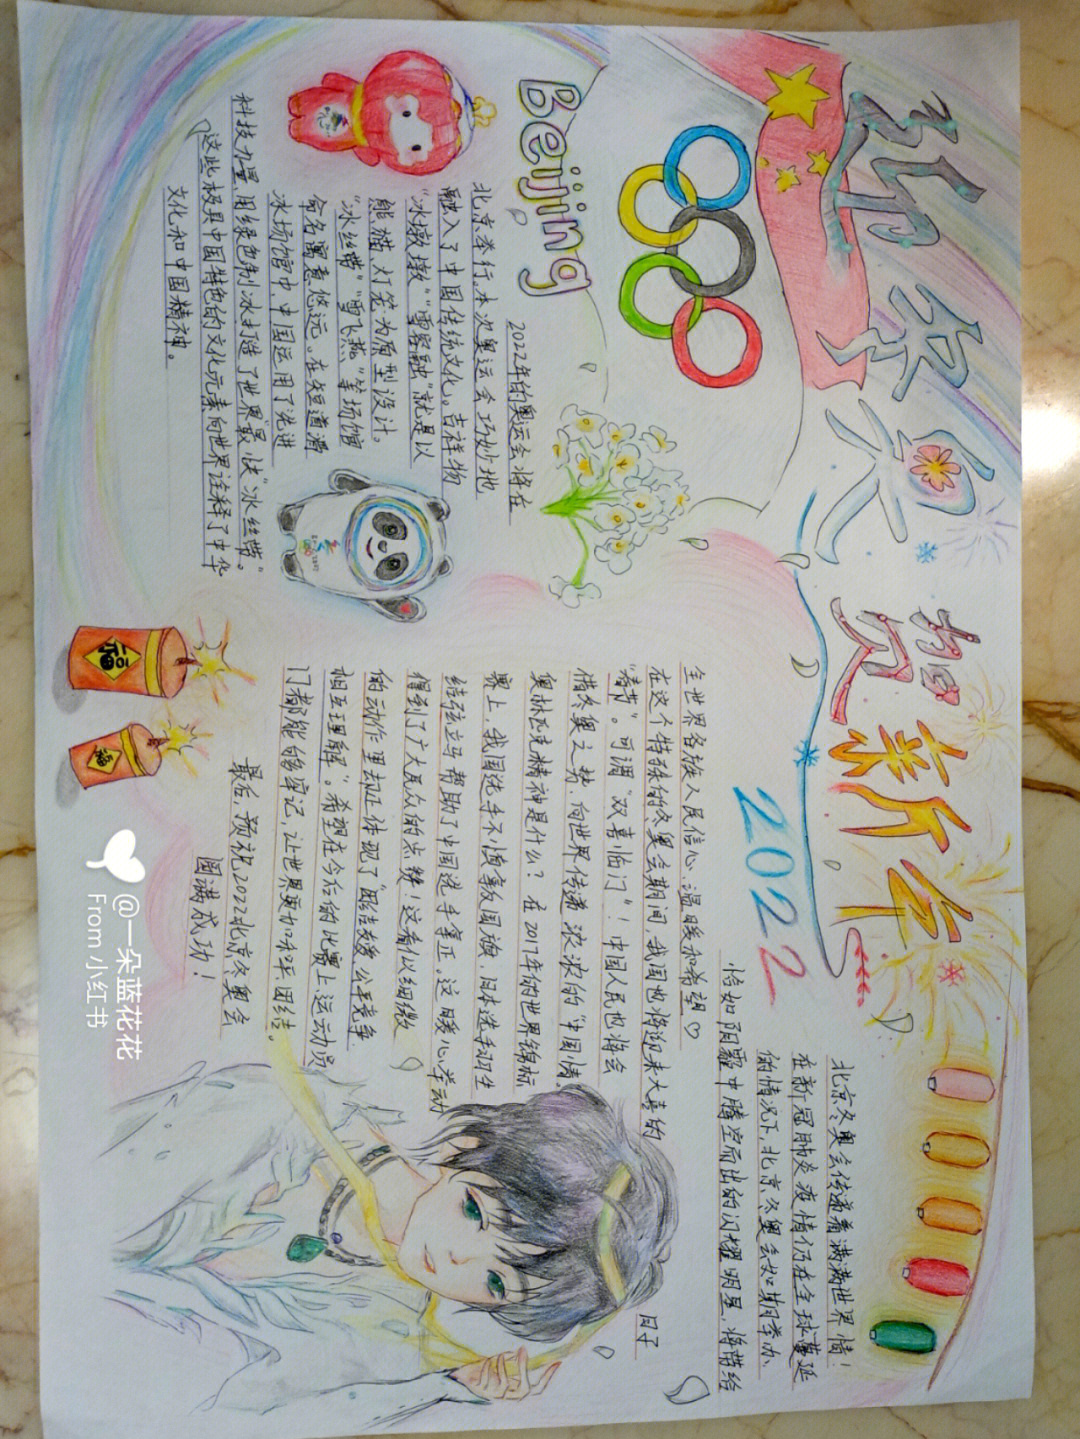 迎冬奥 贺新年
2022
Beijing
2022年的奥运会将在
北京举行。本次奥运会巧妙地
融入了中国传统文化。吉祥物
“冰墩墩”“雪容融”就是以
熊猫、灯笼为原型设计。
“冰丝带”“雪飞燕”等场馆
命名寓意悠远。在短道滑
冰场馆中,中国运用了先进
科技力量,用绿色制冰打造了世界“最快”冰丝带。
这些极具中国特色的文化元素向世界诠释了中华
文化和中国精神。
北京冬奥会传递着满满世界情!
在新冠肺炎疫情仍在全球蔓延
的情况下,北京冬奥会如期举办、
恰如阴霾中腾空而出的闪耀明星,将带给
全世界各族人民信心、温暖和希望♡
在这个特殊的冬奥会期间,我国也将迎来大喜的
“春节”。可谓“双喜临门”!中国人民也将会
借冬奥之势,向世界传递浓浓的“中国情”
奥林匹克精神是什么?在2017年的世界锦标
赛上,我国选手不慎拿反国旗,日本选手羽生
结弦立马帮助了中国选手拿正。这暖心举动
得到了广大观众的点赞!这看似细微
的动作里却正体现了“团结友爱 公平竞争
相互理解”。希望在今后的比赛上运动员
们都能够牢记,让世界更加和平团结。
最后,预祝2022北京冬奥会
圆满成功!
福
福
@一朵蓝花花
From 小红书